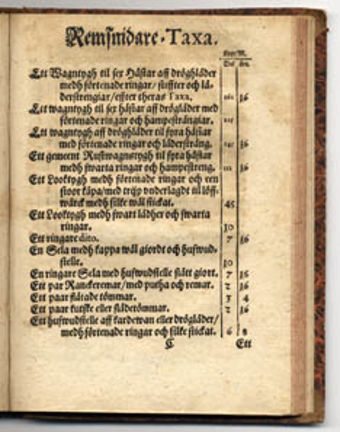 Remsnidare-Taxa.
KopprM.
Dal öre.
Ett Wagntygh til sex Hästar aff dröghläder
medh förtenade ringar / stuffter och lä-
derstrengiar / effter theras Taxa. 16
Ett wagntygh til sex hästar aff drögläder med
förtenade ringar och hampesträngiar.
Ett wagntygh aff dröghläder til fyra hästar
med förtenade ringar och lädersträng. 16
Ett gemeent Rustwagnstygh til fyra hästar
medh swarta ringar och hampestreng. 16
Ett Looktygh medh förtenade ringar och een
stoor kåpa / med tryp vnderlagdt til löff-
wärck medh silke wäl stickat. 45
Ett Looktygh medh swart lädher och swarta
ringar. 30
Ett ringare dito. 7 16
En Sela medh kappa wäl giordt och hufwud-
stelle. 10
En ringare Sela med hufwudstelle slätt giort. 7 16
Ett par Ranckeremar / med putha och remar. 2 16
Ett paar slätade tömmar. 3 4
Ett paar kutske eller slädetömmar. 2 16
Ett hufwudstelle aff kardewan eller drögläder /
medh förtenade ringar och silke stickat. 6 8
C Ett